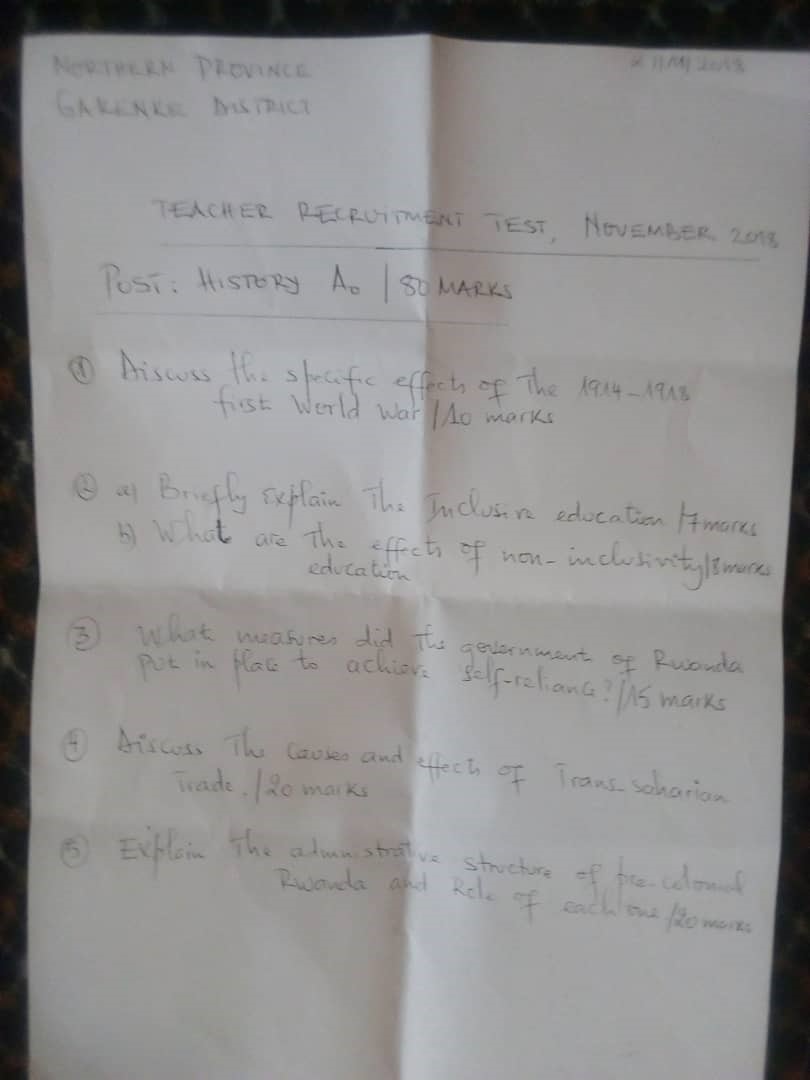 NORTHERN PROVINCE
GAKENKE DISTRICT
TEACHER RECRUITMENT TEST, NOVEMBER 2018
POST: HISTORY A0 / 80 MARKS
① Discuss the specific effects of The 1914-1918
first World War /10 marks
② a) Briefly Explain The Inclusive education /7marks
b) What are The effects of non-inclusivity /8marks
education
③ What measures did The government of Rwanda
put in place to achieve self-reliance? /15 marks
④ Discuss The Causes and effects of Trans-saharian
Trade. /20 marks
⑤ Explain The administrative structure of pre-colonial
Rwanda and Role of each one /20 marks